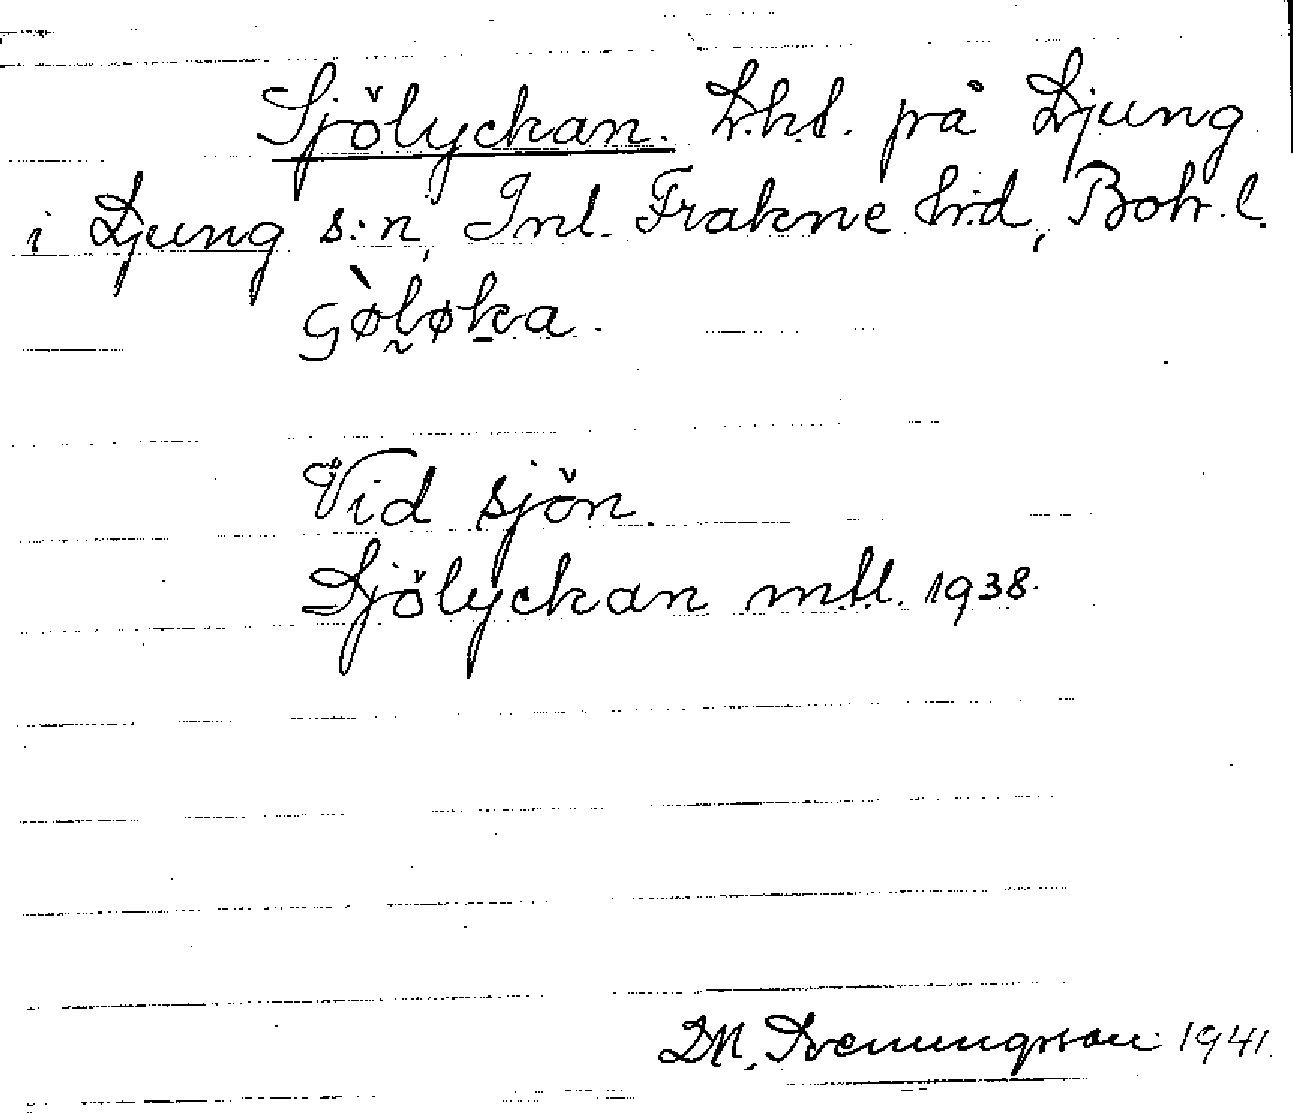 Sjölyckan. Lht. på Ljung
i Ljung s:n, Inl. Fräkne hd, Boh. l.
Vid sjön.
Sjölyckan mtl. 1938.
Svenungsson 1941.